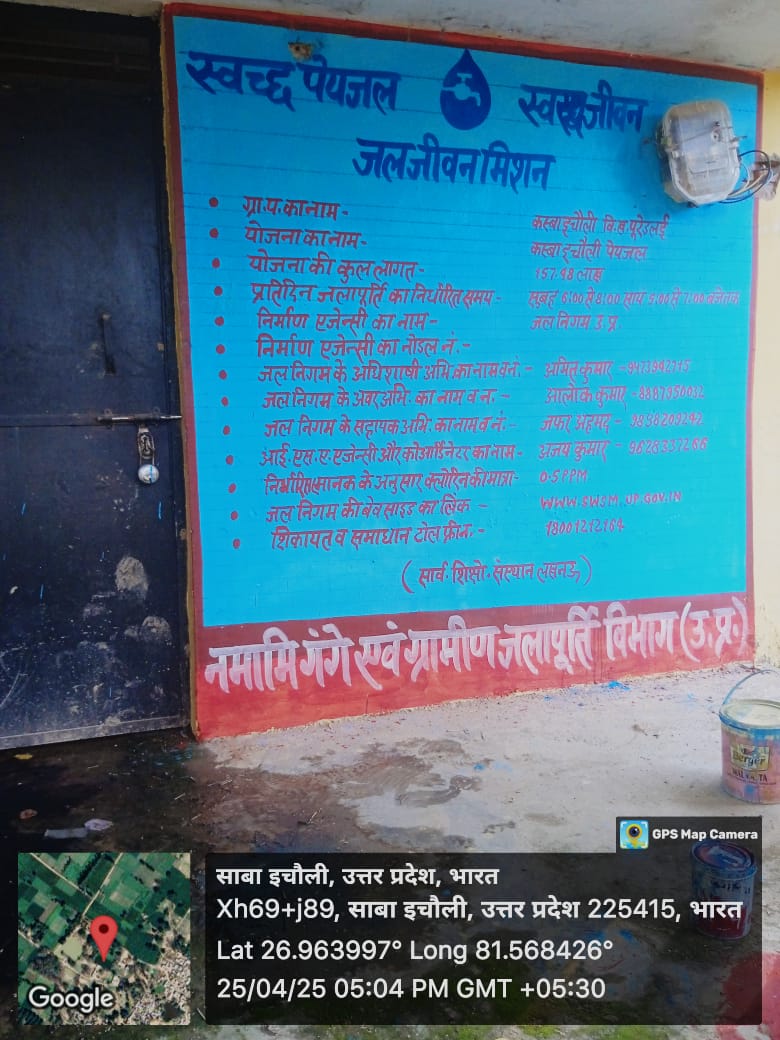 स्वच्छ पेयजल स्वस्थ जीवन
जल जीवन मिशन
ग्रा.प. का नाम - कस्बा इचौली वि.ख. पूरेडलई
योजना का नाम - कस्बा इचौली पेयजल
योजना की कुल लागत - 157.98 लाख
प्रतिदिन जलापूर्ति का निर्धारित समय - सुबह 6:00 से 8:00 सायं 5:00 से 7:00 बजे तक
निर्माण एजेन्सी का नाम - जल निगम उ.प्र.
निर्माण एजेन्सी का नोडल नं. -
जल निगम के अधिशाषी अभि. का नाम व नं. - अमित कुमार -
जल निगम के अवर अभि. का नाम व नं. - आलोक कुमार -
जल निगम के सहायक अभि. का नाम व नं. - जफर अहमद -
आई.एस.ए. एजेन्सी और कोआर्डिनेटर का नाम - अजय कुमार -
निर्धारित मानक के अनुसार क्लोरिन की मात्रा - 0.5 PPM
जल निगम की बेव साइड का लिंक - WWW.SWSM.UP.GOV.IN
शिकायत व समाधान टोल फ्री नं. - 18001212164
(सार्व. शिक्षो. संस्थान लखनऊ)
नमामि गंगे एवं ग्रामीण जलापूर्ति विभाग (उ.प्र.)
Berger
GPS Map Camera
साबा इचौली, उत्तर प्रदेश, भारत
Xh69+j89, साबा इचौली, उत्तर प्रदेश 225415, भारत
Lat 26.963997° Long 81.568426°
25/04/25 05:04 PM GMT +05:30
Google